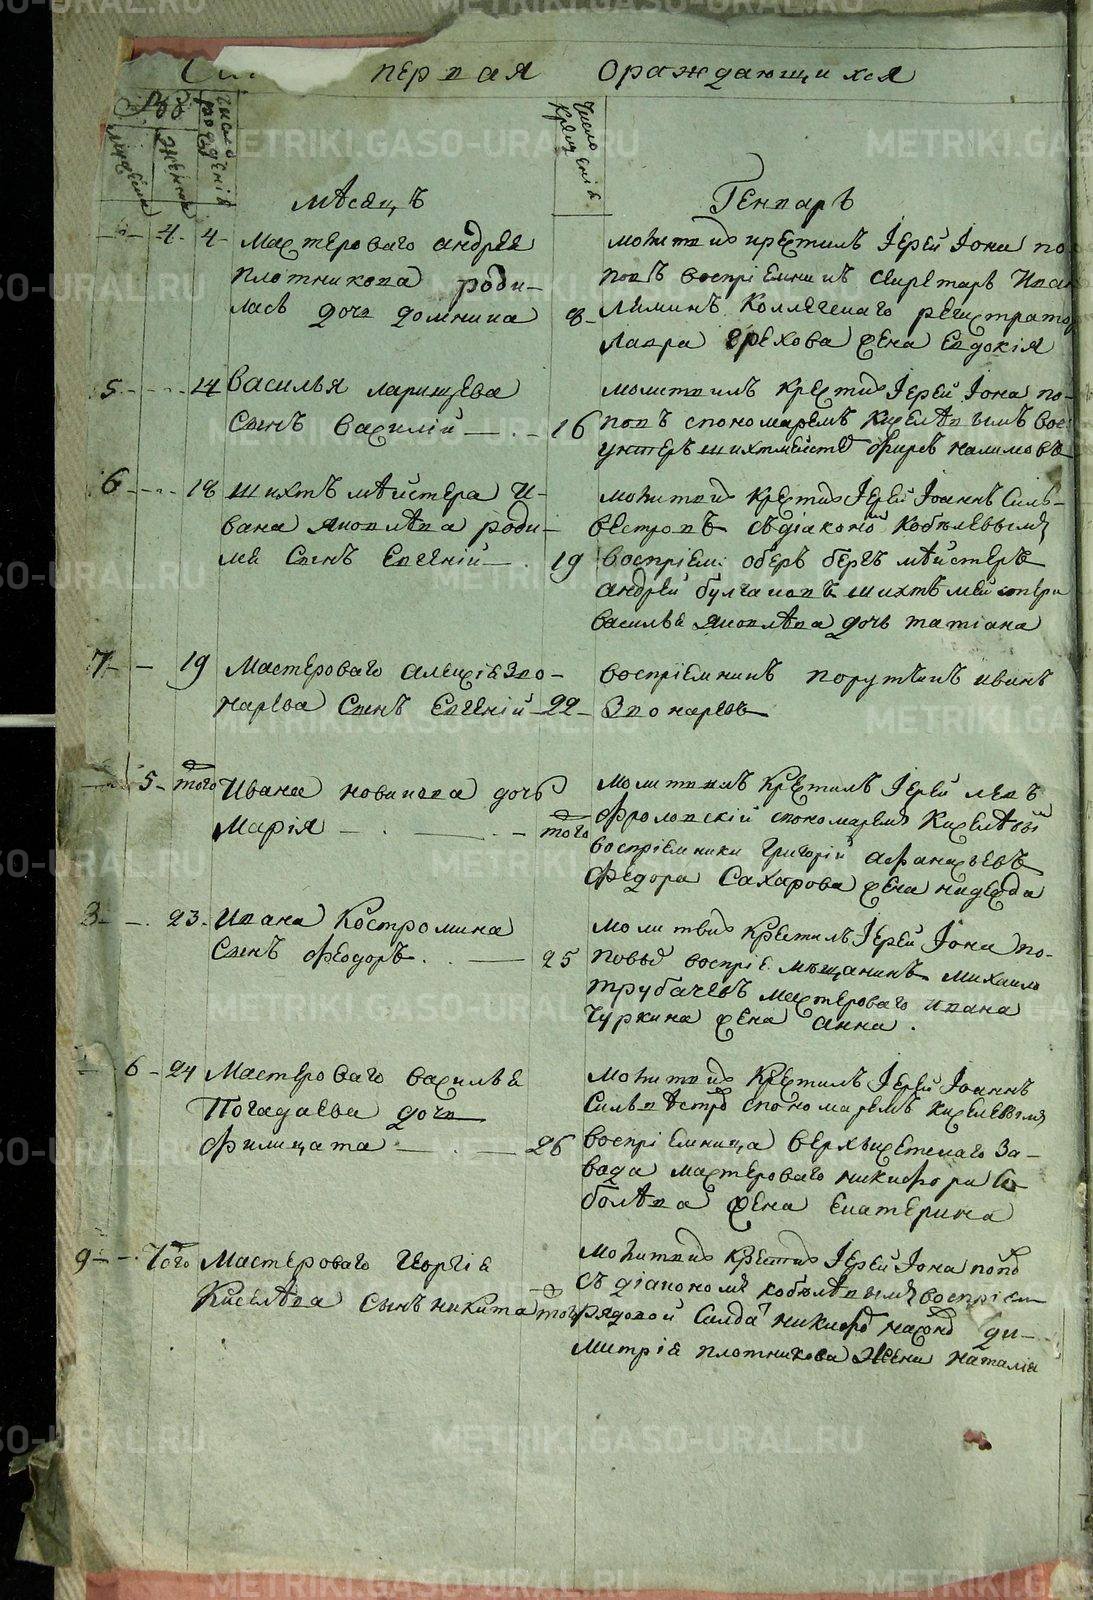 первая ораждающихся
мужеска
женска
число рожденiя
число крещенiя
мѣсяцъ Генваръ
4 4 мастероваго андрея
плотникова роди-
лась дочь домнина
молитвив крестилъ Iерей Iона по-
повъ воспрiемникъ секретарь Иван
8 Ляминъ Коллежскаго регистратор
Лавра грехова жена Евдокiя
5 14 василья ларищева
сынъ василiй
молитвилъ крестил Iерей Iона по-
16 повъ спономаремъ киселѣвымъ вос
унтеръ шихтмейстер фирсъ налимовъ
6 18 шихтъ мѣйстера И-
вана яковлѣва роди-
лся сынъ Евгенiй
молитвив крестил Iерей Iоаннъ Силь-
вестровъ съ дiакономъ кобѣлевымъ
19 воспрiем: оберъ бергъ мѣйстеръ
андрей булгаковъ шихтъ мейстера
василья яковлѣва дочь татiана
7 19 мастероваго алексiя зво-
нарева сынъ Евгенiй 22
воспрiемникъ порутчикъ иванъ
звонаревъ
5 того Ивана новикова дочь
марiя
молитвилъ крестилъ Iерей левъ
того фроловскiй спономаремъ киселѣвы
воспрiемники григорiй афанасьевъ
федора Сахарова жена надежда
23 Ивана Костромина
сынъ феодоръ
молитвив крестилъ Iерей Iона по-
25 повъ воспрiе: мѣщанинъ михаило
трубачевъ мастероваго ивана
чуркина жена анна.
6 24 мастероваго василья
погадаева дочь
филицата
молитвив крестилъ Iерей Iоаннъ
Сильвѣстров спономаремъ киселевымъ
26 воспрiемница верхъисетскаго за-
вода мастероваго никифора Со
болѣва жена Екатерина
9 того мастероваго георгiя
Киселѣва сынъ никита того
молитвив крестил Iерей Iона попов
съ дiакономъ кобѣлевымъ воспрiем
рядовой салдат никифор
митрiя плотникова жена наталiя